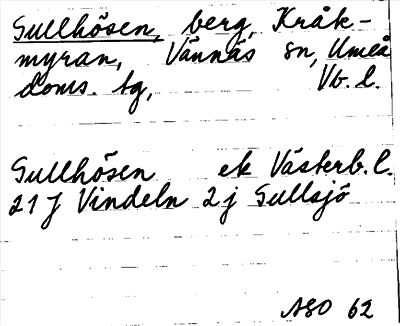 Gullhösen, berg, Kråk-
myran, Vännäs sn, Umeå
doms. tg, Vb. l.
Gullhösen ek Västerb. l.
21 J Vindeln 2 j Gullsjö
ASO 62